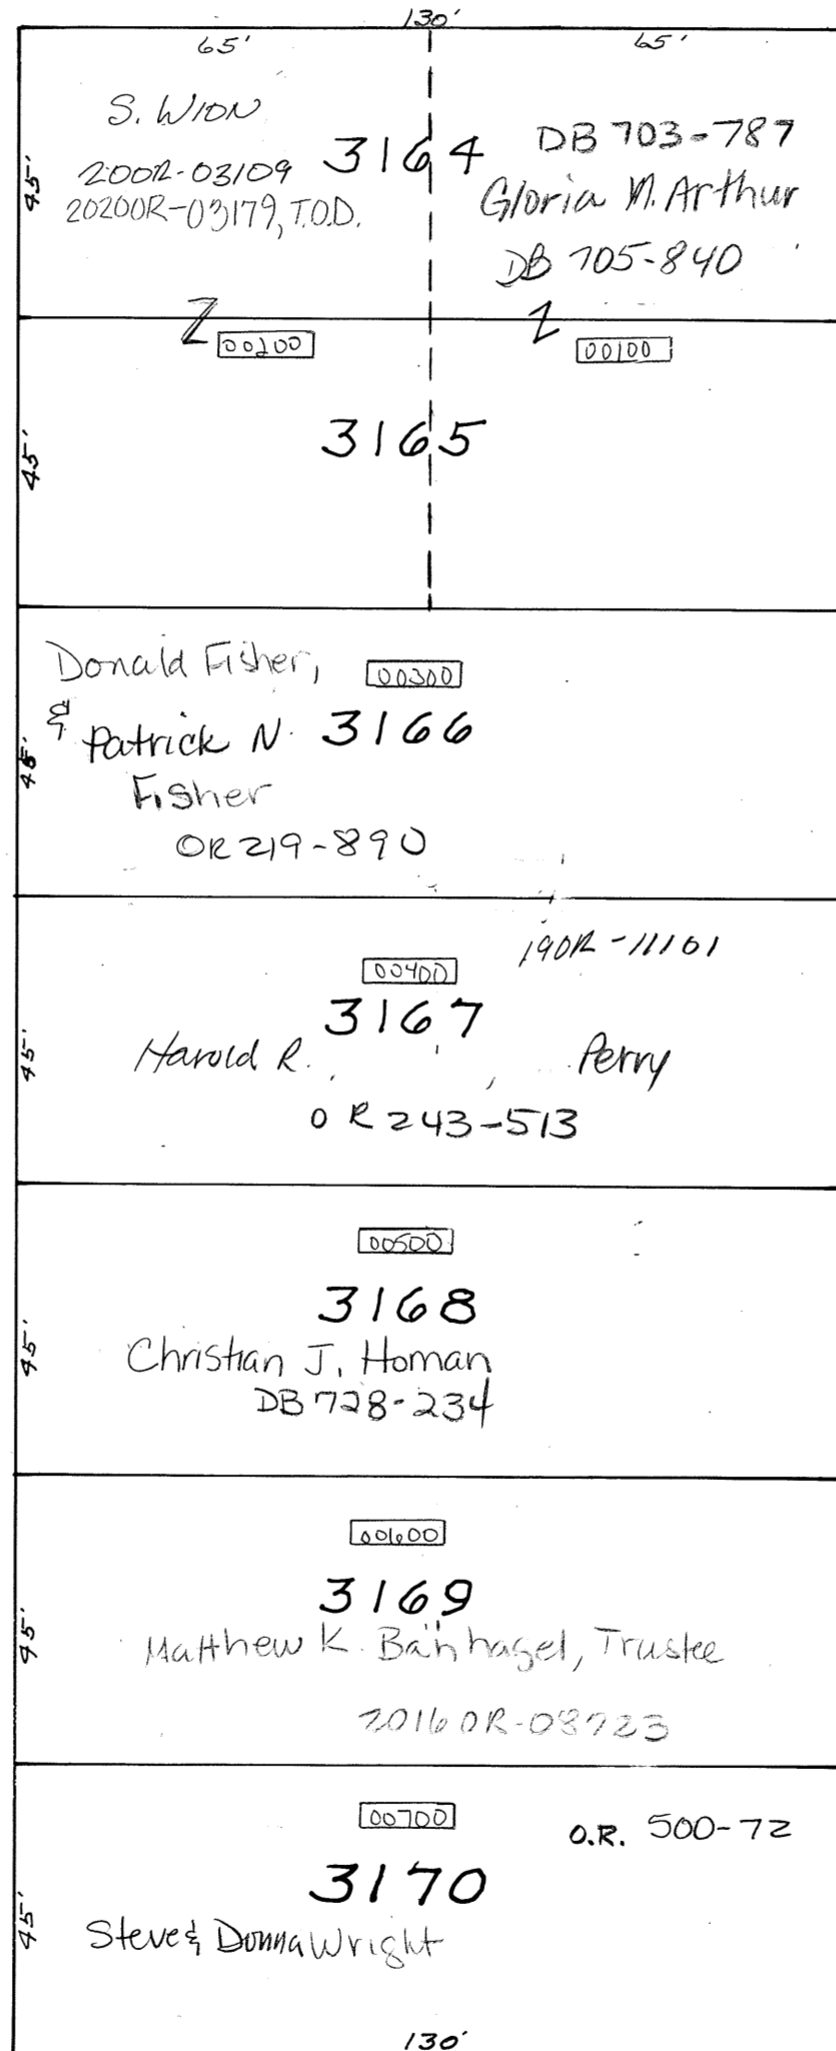 130'
65' 65'
S. WION
200R-03109
20200R-03179, T.O.D.
3164
DB 703-787
Gloria M. Arthur
DB 705-840
45'
Z Z
00200 00100
3165
45'
Donald Fisher,
00300
& Patrick N.
3166
Fisher
OR 219-890
45'
190R-11101
00400
3167
Harold R. Perry
OR 243-513
45'
00500
3168
Christian J. Homan
DB 728-234
45'
00600
3169
Matthew K. Bahhagel, Trustee
20160R-08723
45'
00700
O.R. 500-72
3170
Steve & Donna Wright
45'
130'